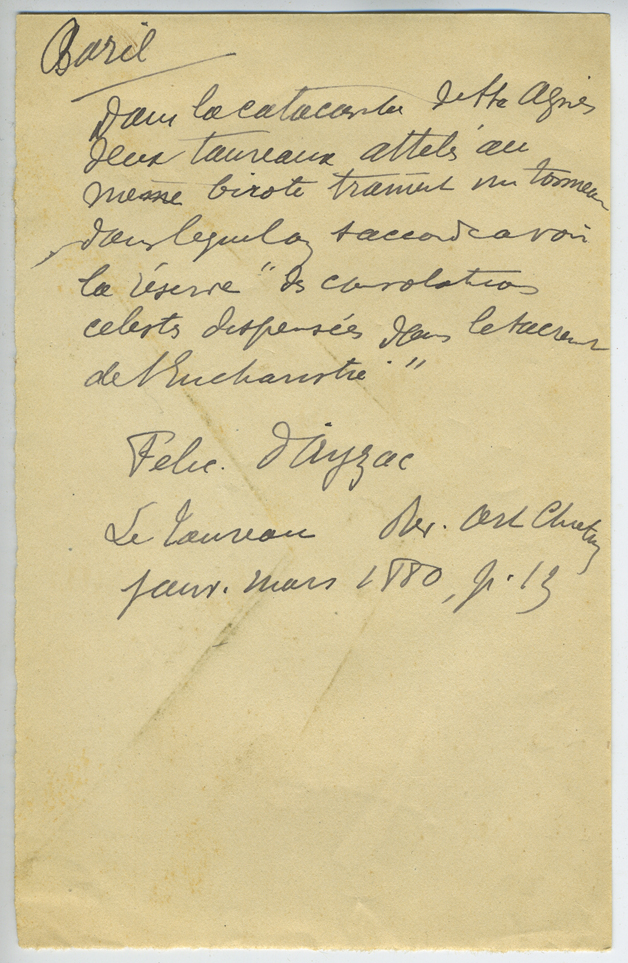 Baril
Dans la catacombe de Ste Agnès
deux taureaux attelés au
même birote trainent un tonneau
dans lequel on s'accorde a voir
la réserve " des consolations
celestes dispensées dans le sacrem
de l'Eucharistie "
Felic. d'Ayzac
Le Taureau Rev. Art Chretien
janv. mars 1880, p. 13